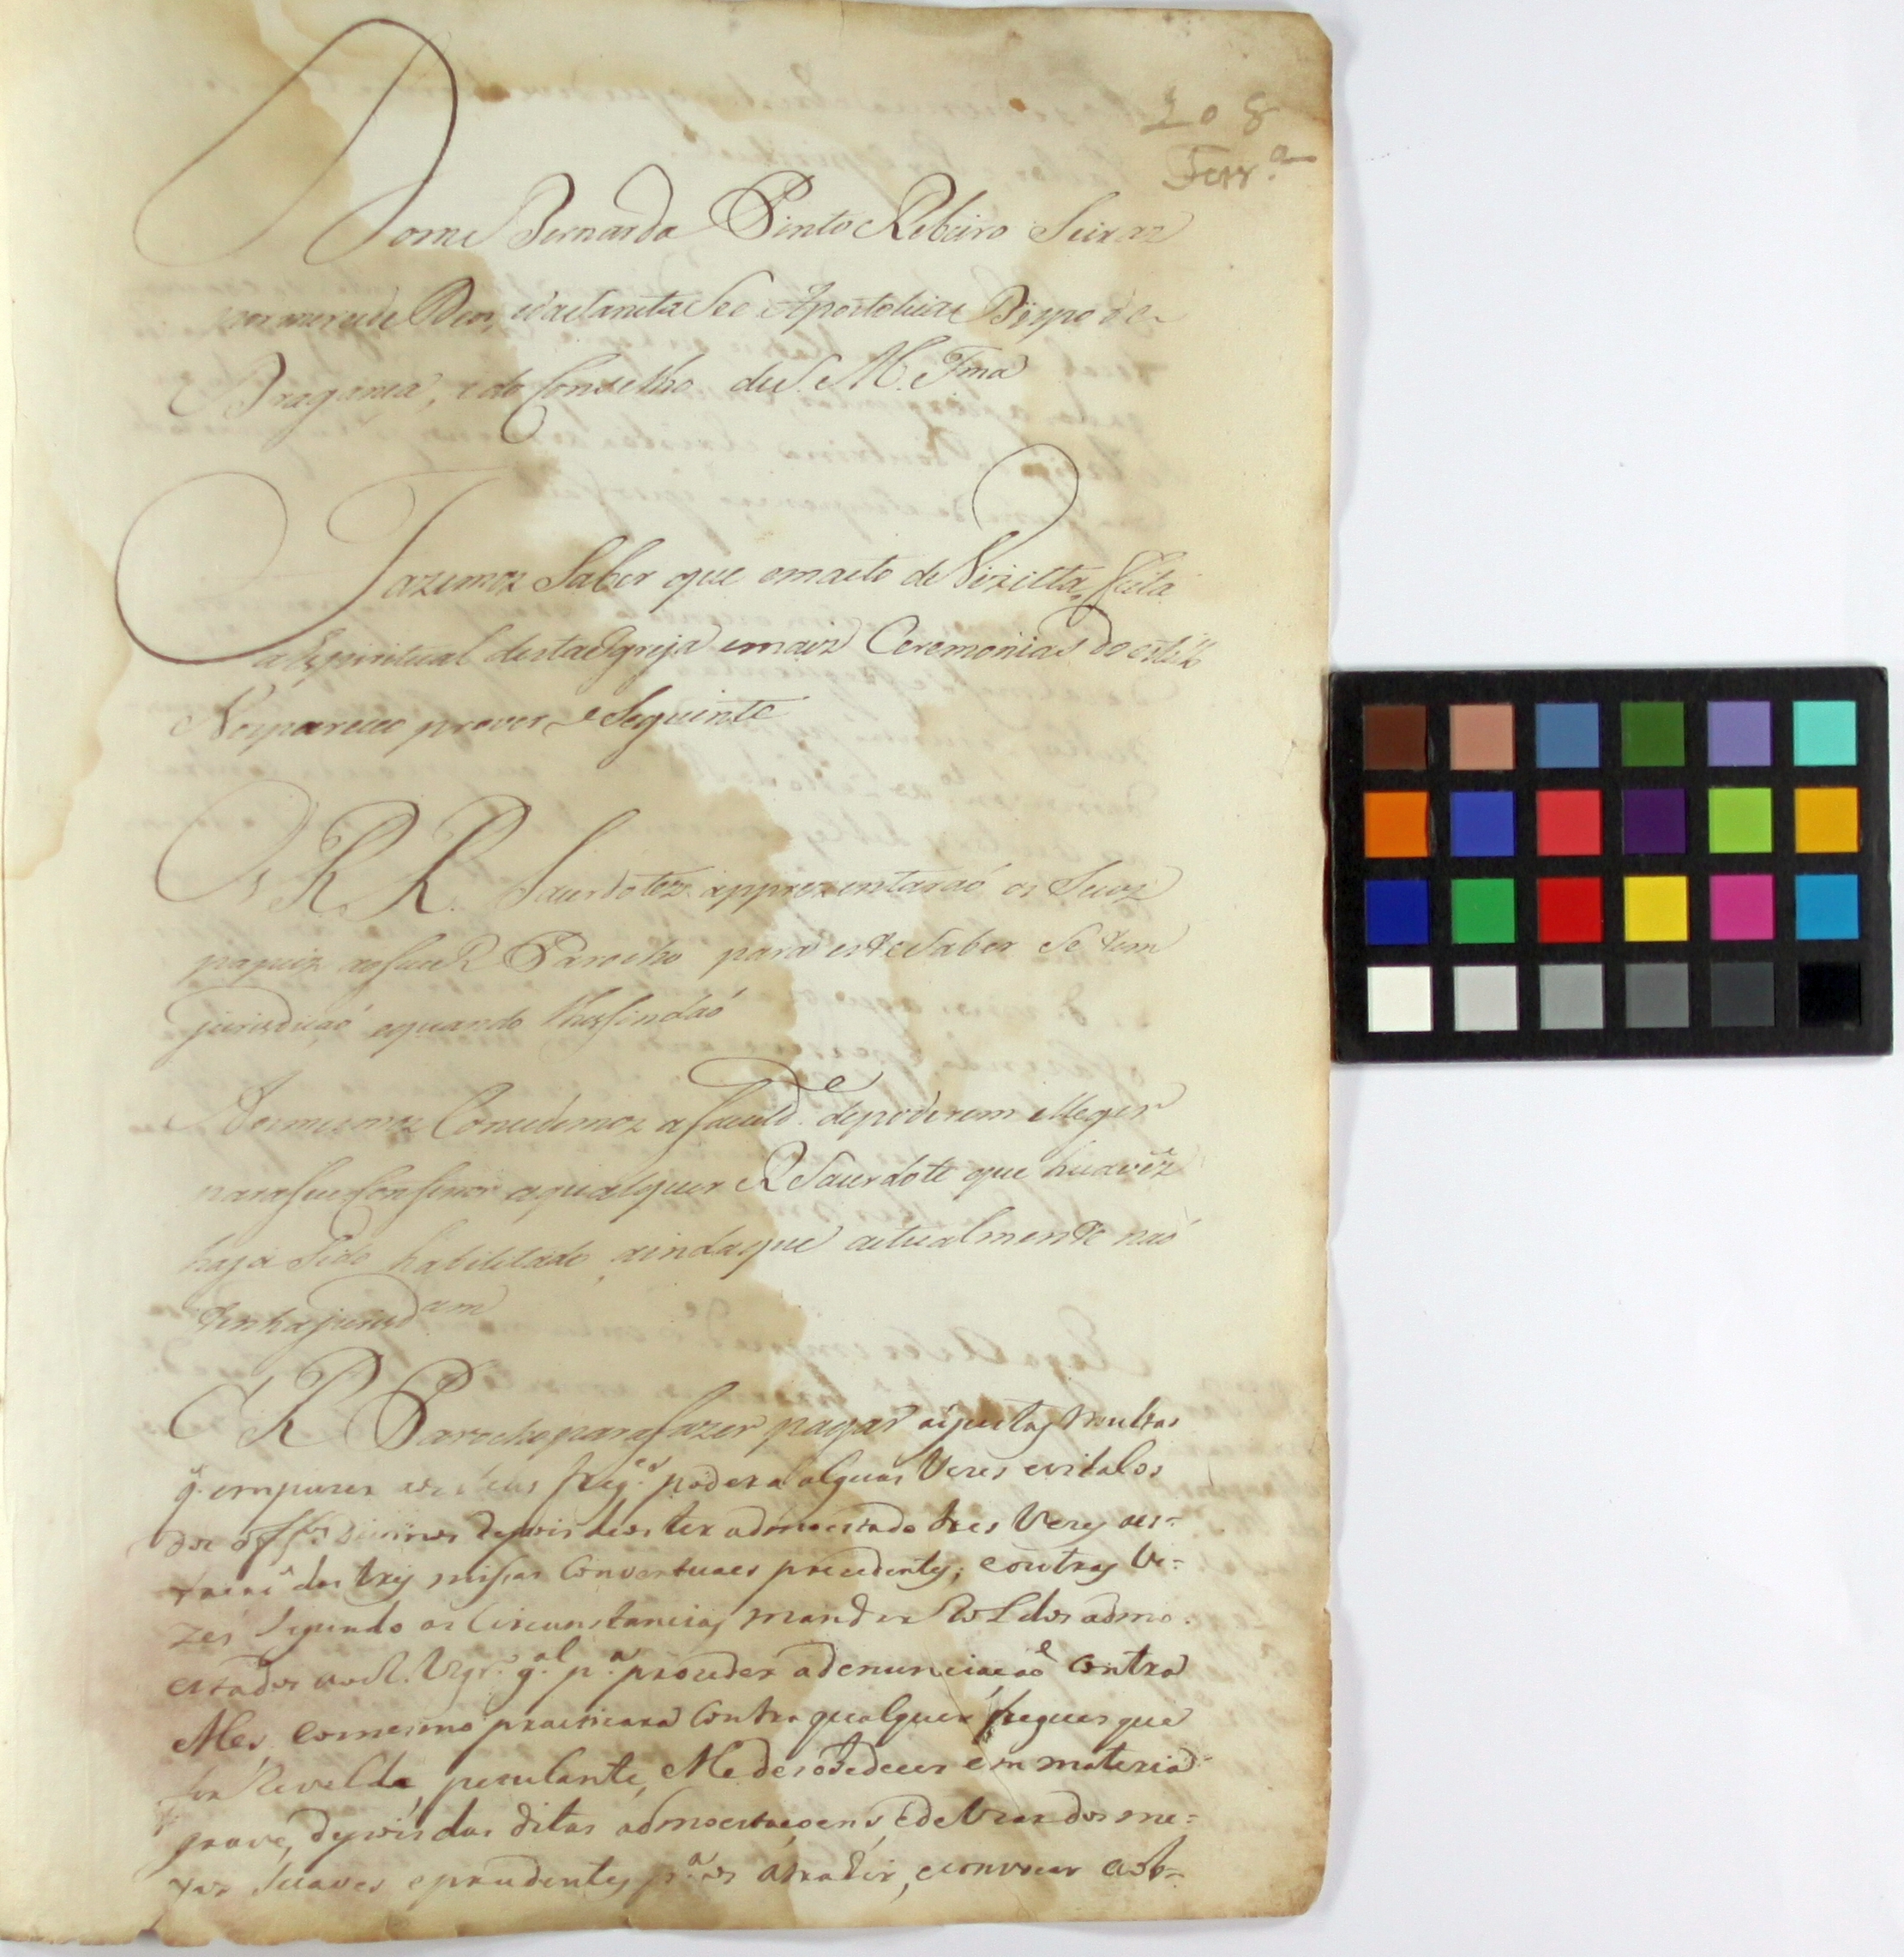 208
Ferr.ª
Dom Bernardo Pinto Ribeiro Seixaz
por merce de Deos, e da Santa See Apostolica Bispo de
Bragança, e do Conselho de S. M. Fma
Fazemoz Saber que em acto de Vizitta feita
a Espiritual desta Igreja e maiz Ceremonias do estillo
Nos pareceo prover o Seguinte
Os R R. Sacerdotez apprezentaraó os Seuz
papeiz ao seu R Parocho para este Saber Se tem
jurisdiçaó e quando lhes findaó
Aos mesmoz Concedemoz a faculd.e de poderem elleger
para seu Confesor a qualquer R Sacerdote que hua vêz
haja Sido habilitado, ainda que actualmente naó
tenha jurisd am
O R Parocho para fazer pagar as justas multas
q. empuzer aos seus freg.es poderá algüas Vezes evitalos
dos off.os Divinos depois de os ter admoestado tres Vezes as-
das tres missas Conventuaes precedentes; e outras Ve-
zes segundo as Circunstancias mandar Rol dos admo-
estados ao R. Vigr.º g.al p.a proceder a denunciaçaõ contra
elles, e o mesmo praticara Contra qualquer freguez que
for Revelde, petulante, e lhe desobedecer em materia
grave, depois das ditas admoestaçoens, e de Uzar dos me-
yos suaves e prudentes p.a os atrahir, e convocar a ob-